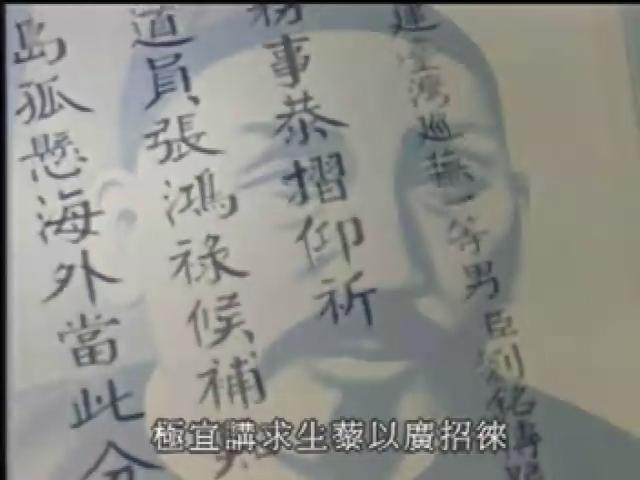 建臺灣巡撫一等男臣劉銘傳跪
務事恭摺仰祈
道員張鴻祿候補
島孤懸海外當此
極宜講求生藜以廣招徠